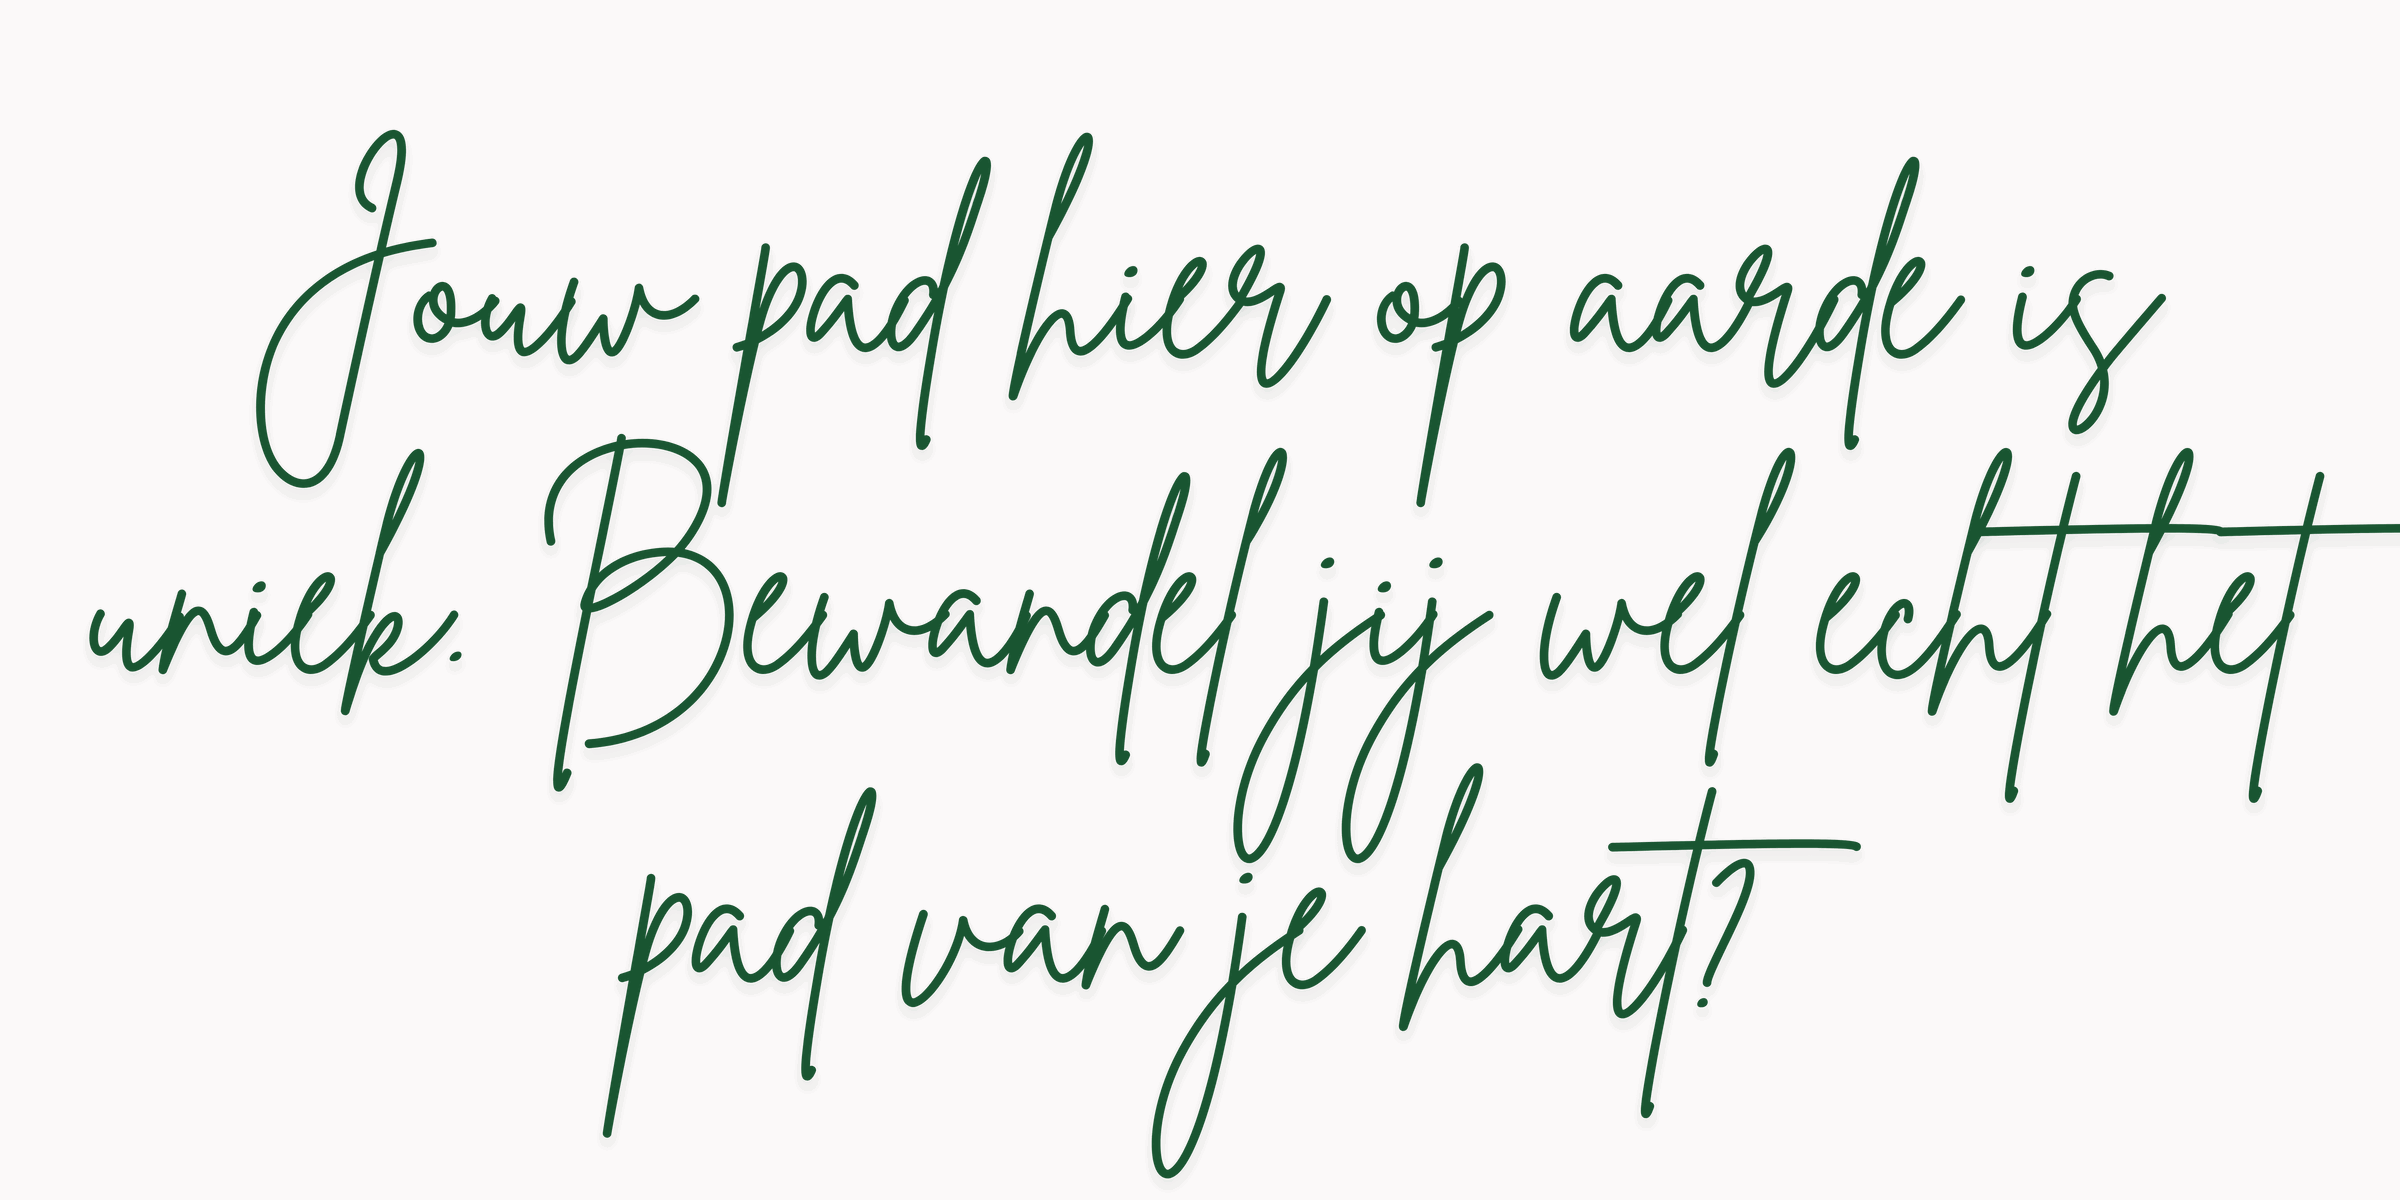 Jouw pad hier op aarde is
uniek. Bewandel jij wel echt het
pad van je hart?